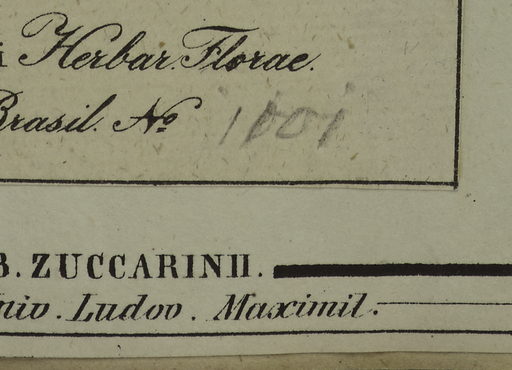 i Herbar. Florae.
Brasil. No 1001
B. ZUCCARINII.
niv. Ludov. Maximil.